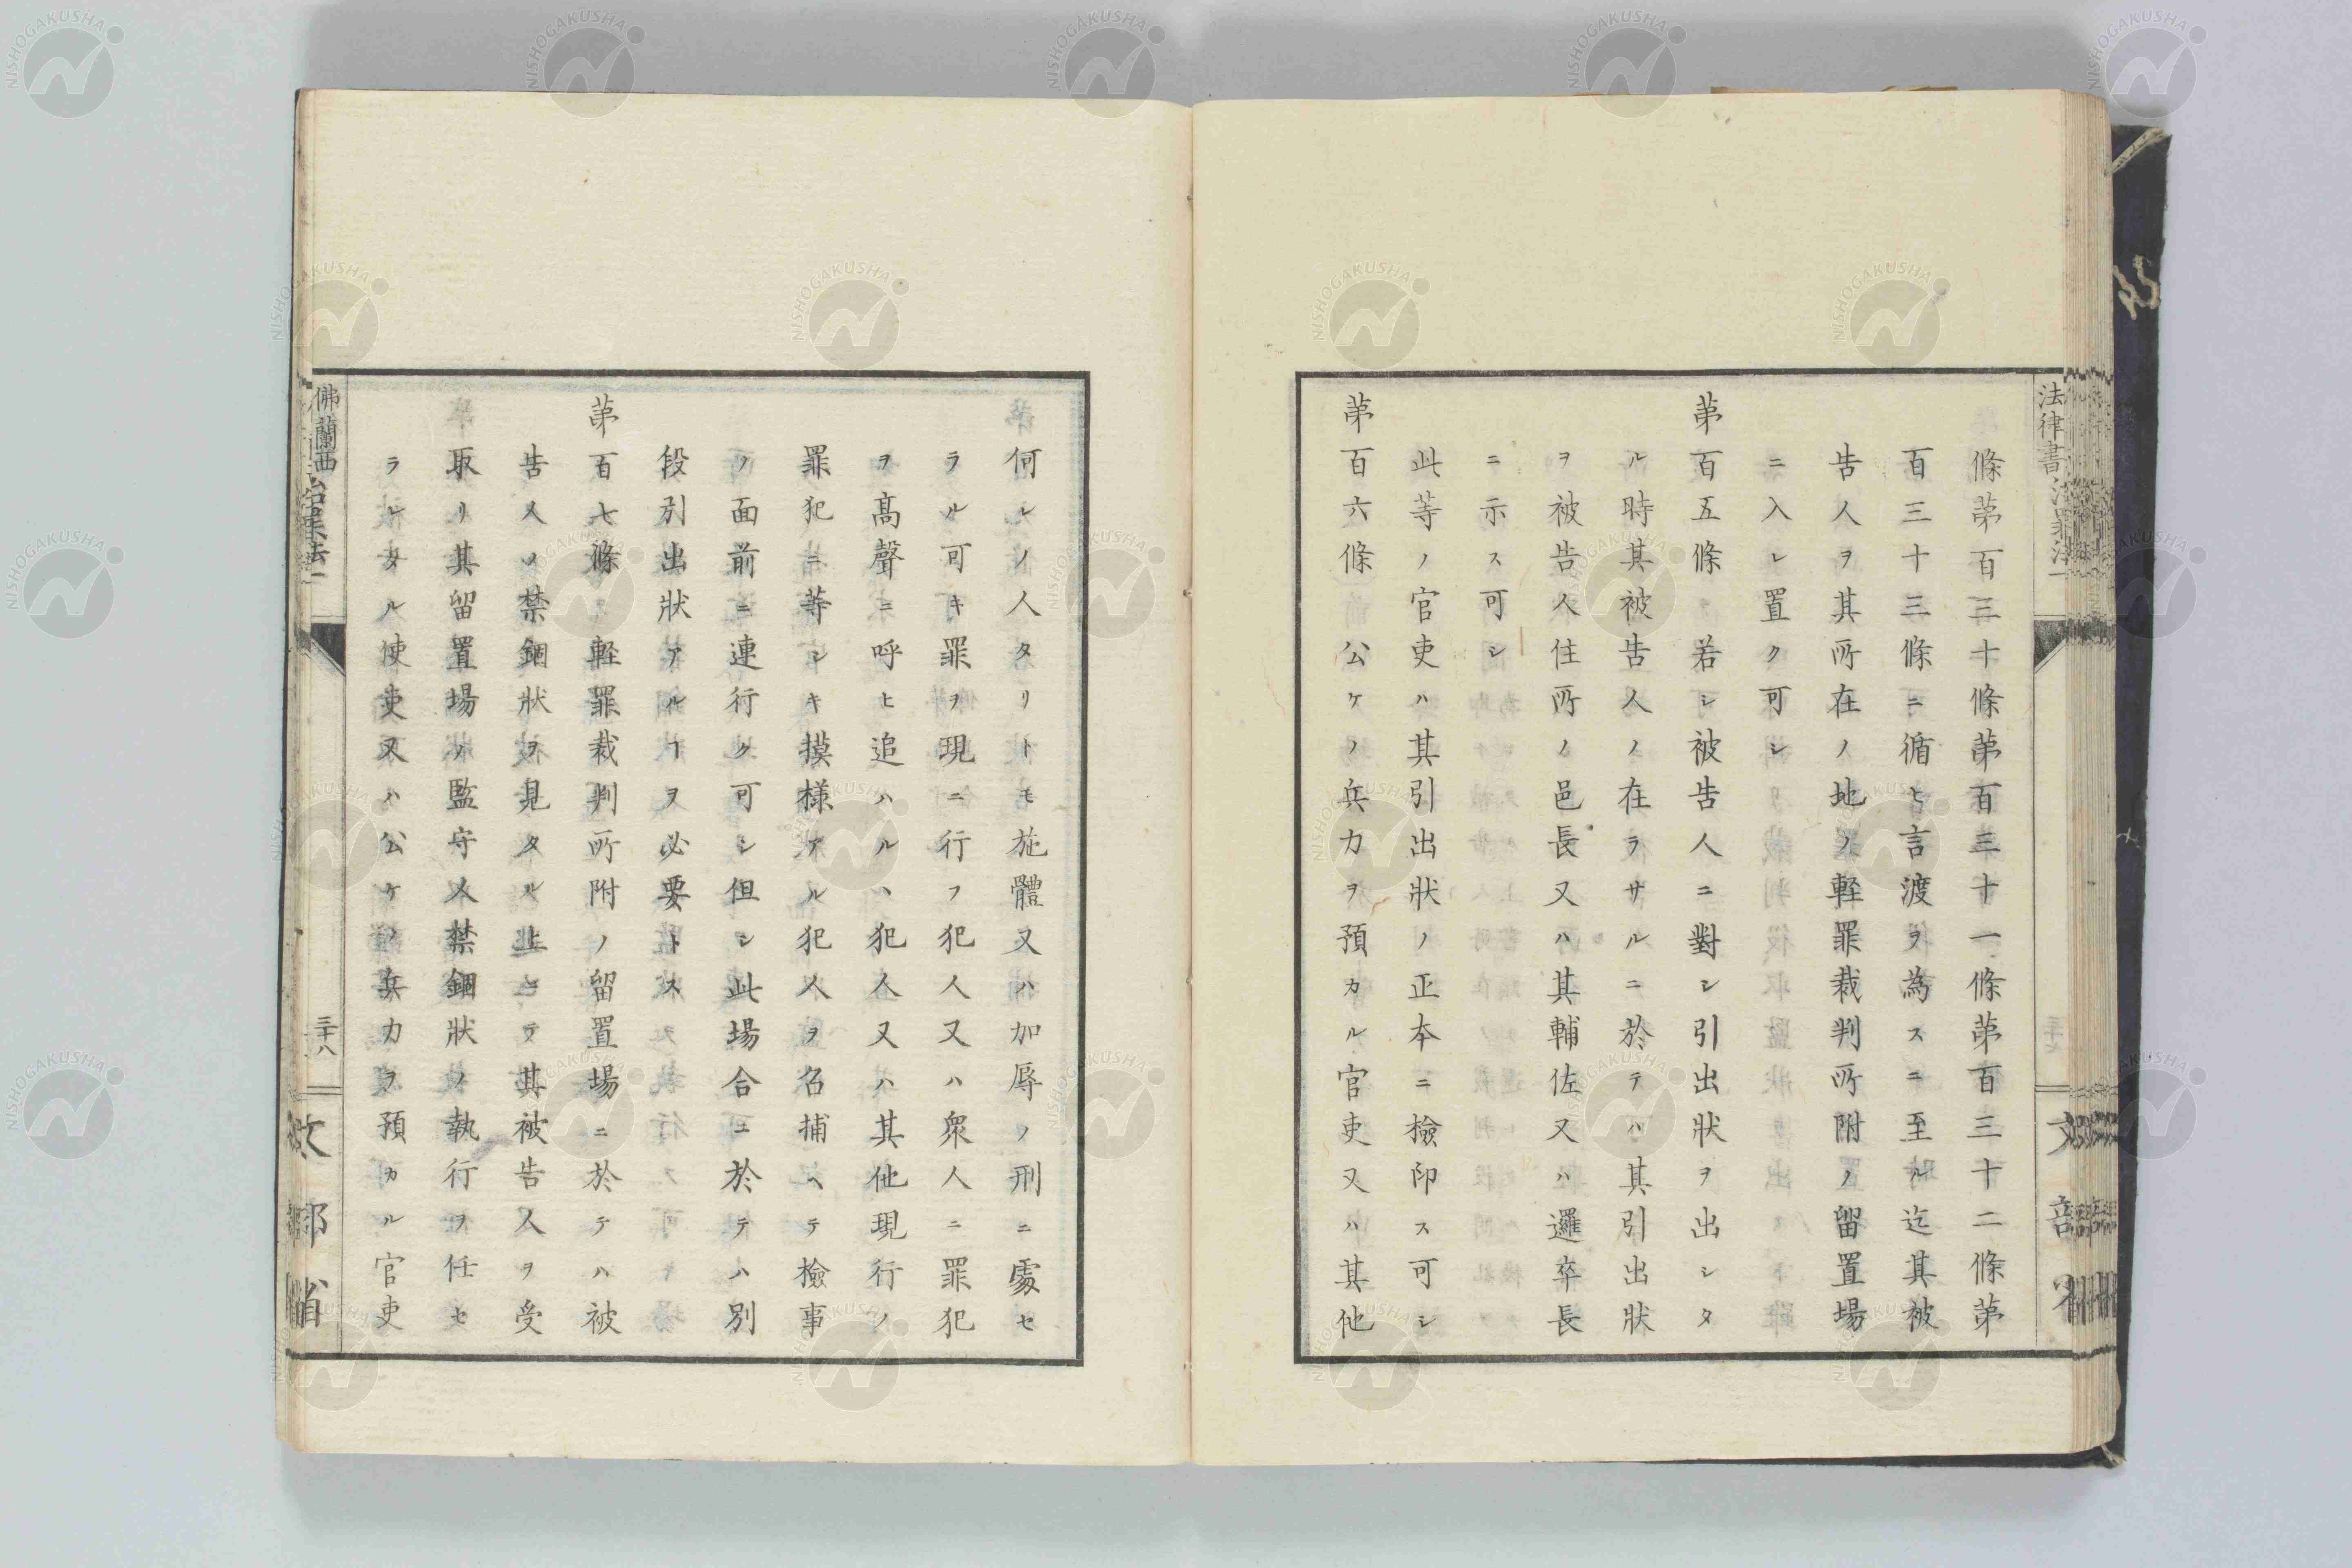 條第百三十條第百三十一條第百三十二條第
百三十三條ニ循ヒ言渡ヲ為スニ至ル迄其被
告人ヲ其所在ノ地ノ軽罪裁判所附ノ留置場
ニ入レ置ク可シ
第百五條 若シ被告人ニ對シ引出狀ヲ出シタ
ル時其被告人ノ在ラサルニ於テハ其引出狀
ヲ被告人住所ノ邑長又ハ其輔佐又ハ邏卒長
ニ示ス可シ
此等ノ官吏ハ其引出狀ノ正本ニ檢印ス可シ
第百六條 公ケノ兵力ヲ預カル官吏又ハ其他
何レノ人タリトモ施體又ハ加辱ノ刑ニ處セ
ラル可キ罪ヲ現ニ行フ犯人又ハ衆人ニ罪犯
ヲ高聲ニ呼ヒ追ハルヽ犯人又ハ其他現行ノ
罪犯ニ等シキ摸樣アル犯人ヲ召捕ヘテ檢事
ノ面前ニ連行ク可シ但シ此場合ニ於テハ別
段別出狀アルヿヲ必要トス
第百七條 軽罪裁判所附ノ留置場ニ於テハ被
告人ノ禁錮狀ヲ見タル上ニテ其被告人ヲ受
取リ其留置場ノ監守人禁錮狀ノ執行ヲ任セ
ラレタル使吏又ハ公ケノ兵力ヲ預カル官吏
佛蘭西治罪法一
三十八
文部省